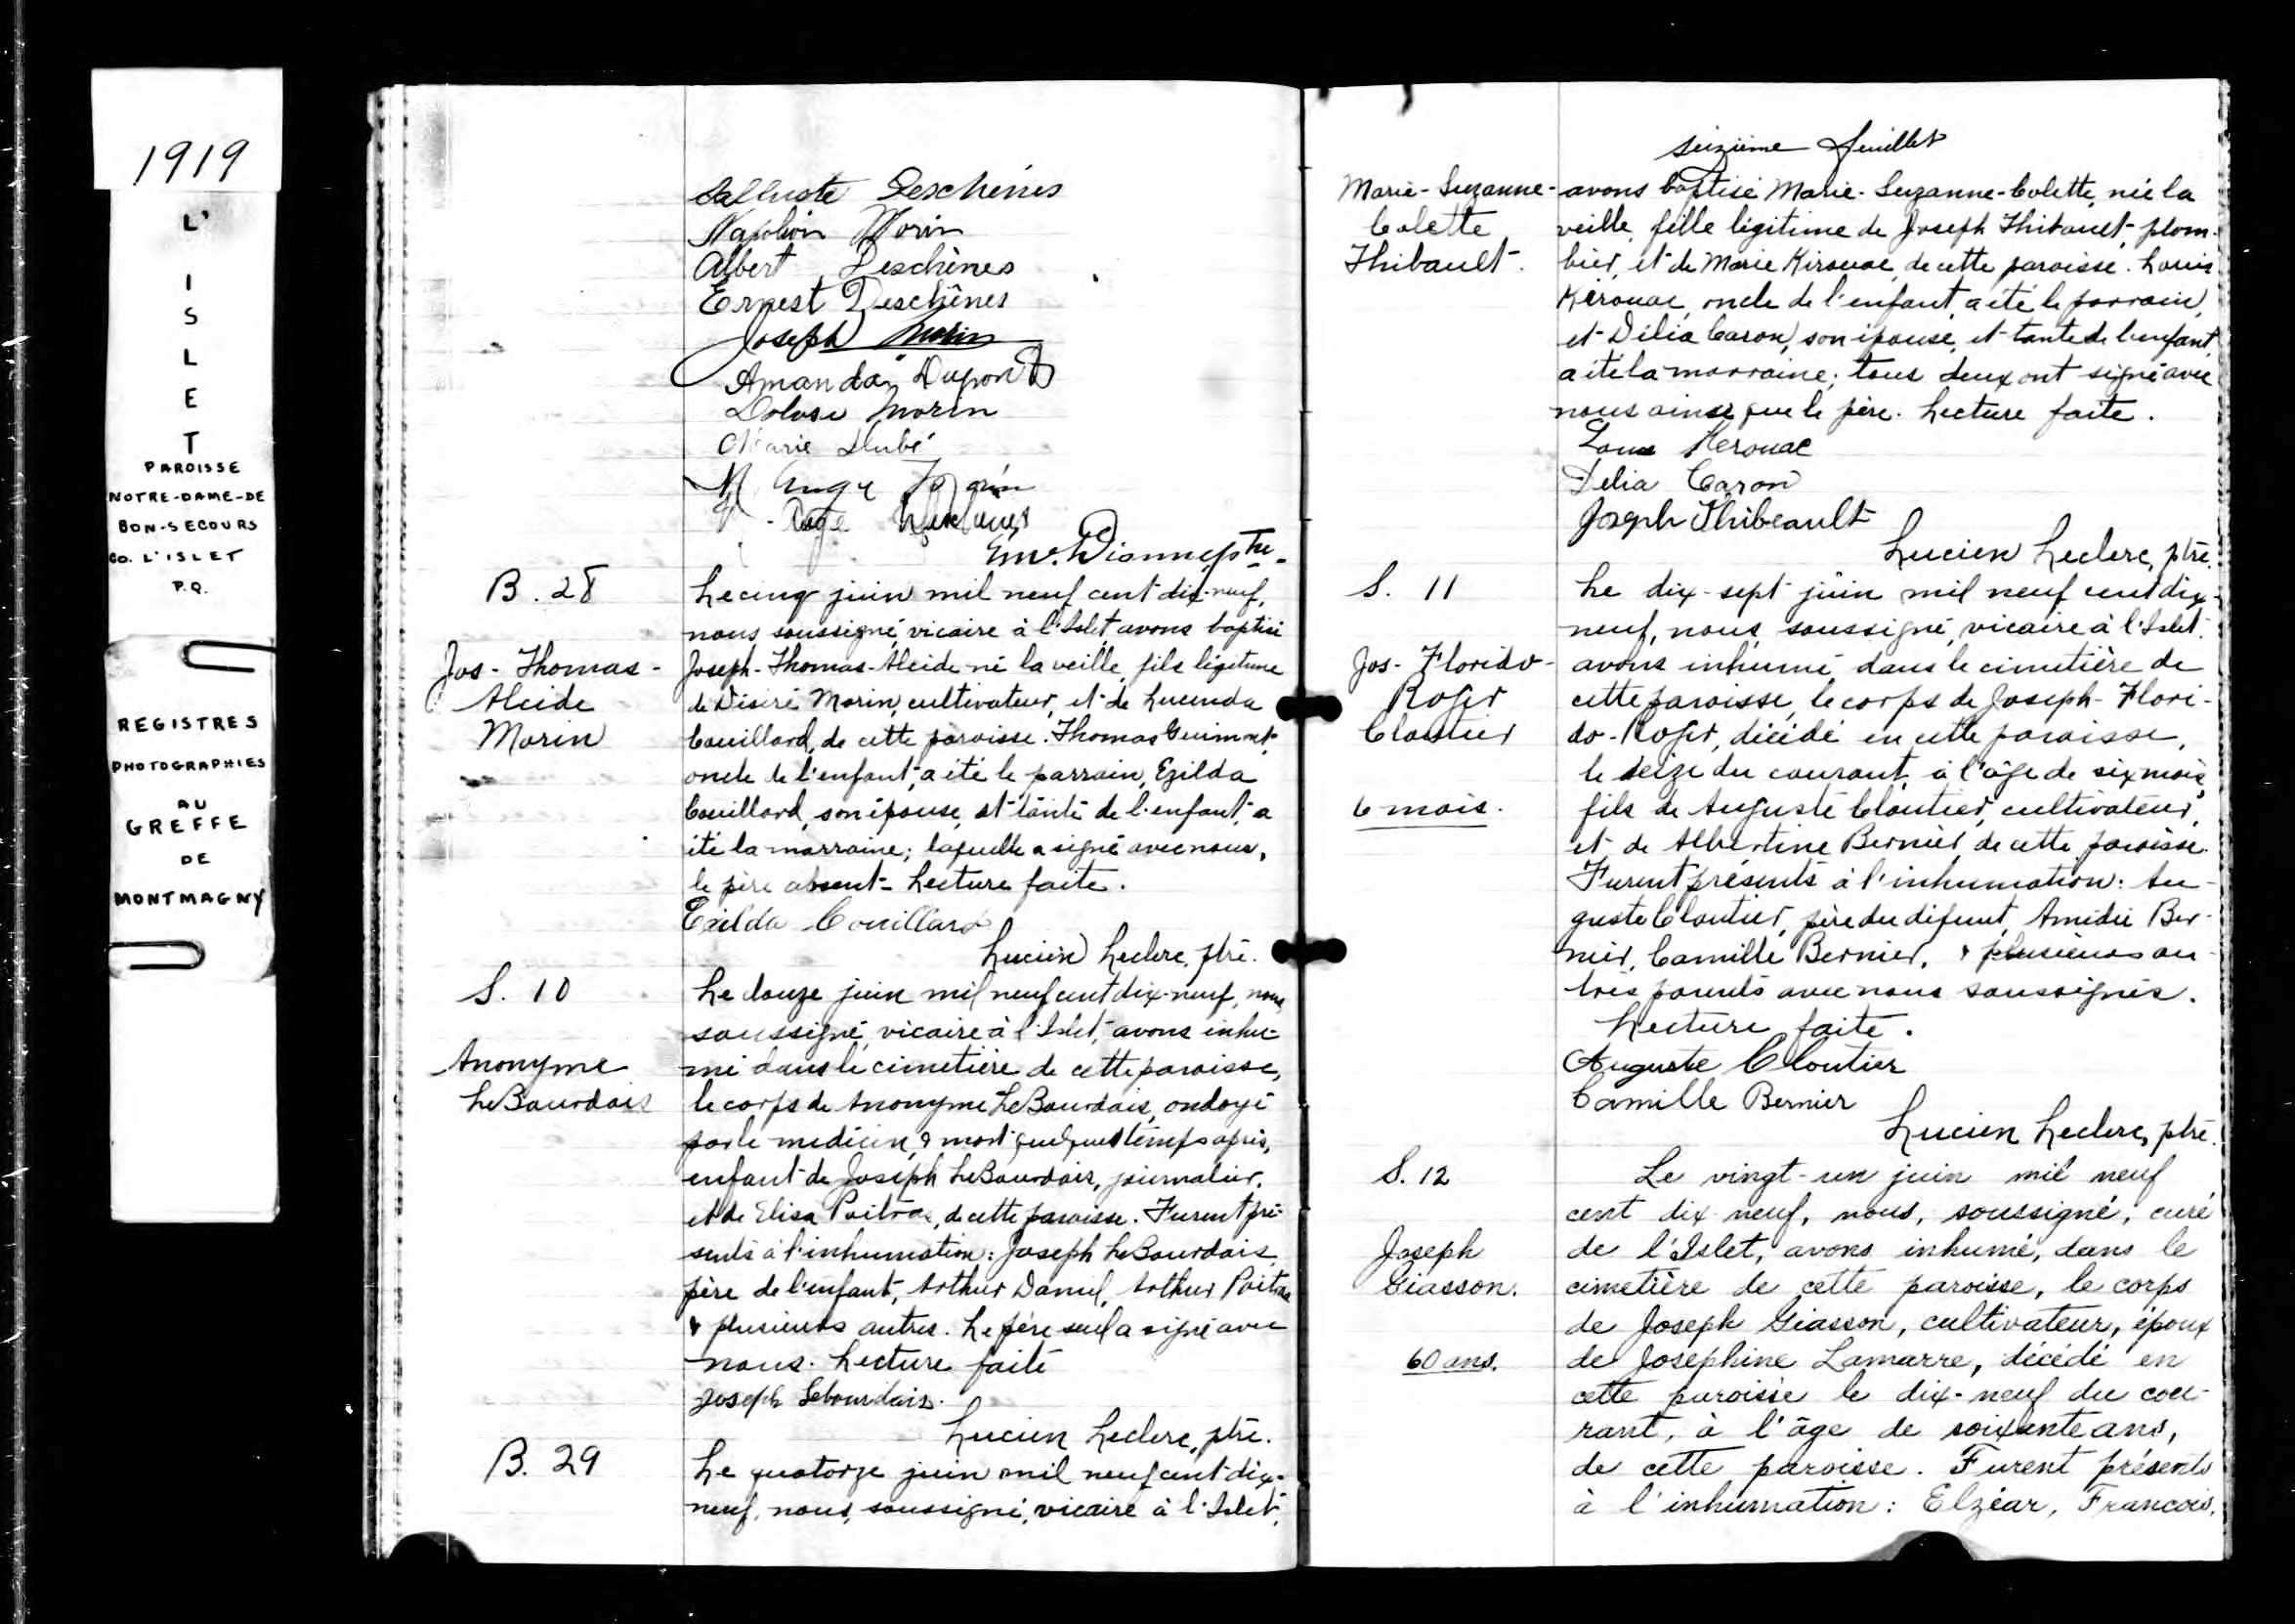 1919
L'
I
S
L
E
T
PAROISSE
NOTRE-DAME-DE
BON-SECOURS
CO. L'ISLET
P.Q.
REGISTRES
PHOTOGRAPHIES
AU
GREFFE
DE
MONTMAGNY
Salluste Deschênes
Napoléon Morin
Albert Deschênes
Ernest Deschênes
Joseph Morin
Amanda Dupont
Morin
Marie Dubé
M Ange Morin
Em. Dionne ptre.
B. 28
Le cinq juin mil neuf cent dix-neuf,
nous soussigné, vicaire à l'Islet avons baptisé
Jos-Thomas-
Alcide
Morin
Joseph-Thomas-Alcide né la veille, fils légitime
de Désiré Morin, cultivateur, et de Lucinda
Couillard, de cette paroisse. Thomas Guimont,
oncle de l'enfant, a été le parrain, Exilda
Couillard, son épouse, et tante de l'enfant, a
été la marraine; laquelle a signé avec nous,
le père absent. Lecture faite.
Exilda Couillard
Lucien Leclerc, ptre.
S. 10
Le douze juin mil neuf cent dix-neuf, nous
soussigné, vicaire à l'Islet, avons inhu-
Anonyme
LeBourdais
mé dans le cimetière de cette paroisse,
le corps de Anonyme LeBourdais, ondoyé
par le medecin, & mort quelques temps après,
enfant de Joseph LeBourdais, journalier,
et de Elisa Poitras, de cette paroisse. Furent pré-
sents à l'inhumation: Joseph LeBourdais
père de l'enfant, Arthur Daniel, Arthur Poitras
& plusieurs autres. Le père seul a signé avec
nous. Lecture faite
Joseph Lebourdais.
Lucien Leclerc, ptre.
B. 29
Le quatorze juin mil neuf cent dix-
neuf, nous, soussigné, vicaire à l'Islet,
seizième feuillet
Marie-Suzanne-
Colette
Thibault.
avons baptisé Marie-Suzanne-Colette, née la
veille, fille légitime de Joseph Thibault, plom-
bier, et de Marie Kirouac, de cette paroisse. Louis
Kérouac, oncle de l'enfant, a été le parrain,
et Délia Caron, son épouse, et tante de l'enfant,
a été la marraine; tous deux ont signé avec
nous ainsi que le père. Lecture faite.
Louis Kerouac
Delia Caron
Joseph Thibeault
Lucien Leclerc, ptre.
S. 11
Le dix-sept juin mil neuf cent dix-
neuf, nous, soussigné, vicaire à l'Islet,
Jos-Florido-
Roger
Cloutier
avons inhumé, dans le cimetière de
cette paroisse, le corps de Joseph-Flori-
do-Roger, décédé en cette paroisse,
le seize du courant, à l'âge de six mois,
6 mois.
fils de Auguste Cloutier, cultivateur,
et de Albertine Bernier, de cette paroisse.
Furent présents à l'inhumation: Au-
guste Cloutier, père du défunt, Amédée Ber-
nier, Camille Bernier, & plusieurs au-
tres parents avec nous soussignés.
Lecture faite.
Auguste Cloutier
Camille Bernier
Lucien Leclerc, ptre.
S. 12
Le vingt-un juin mil neuf
cent dix neuf, nous, soussigné, curé
Joseph
Giasson.
de l'Islet, avons inhumé, dans le
cimetière de cette paroisse, le corps
de Joseph Giasson, cultivateur, époux
60 ans.
de Josephine Lamarre, décédé en
cette paroisse le dix-neuf du cou-
rant, à l'âge de soixante ans,
de cette paroisse. Furent présents
à l'inhumation: Elzéar, Francois,